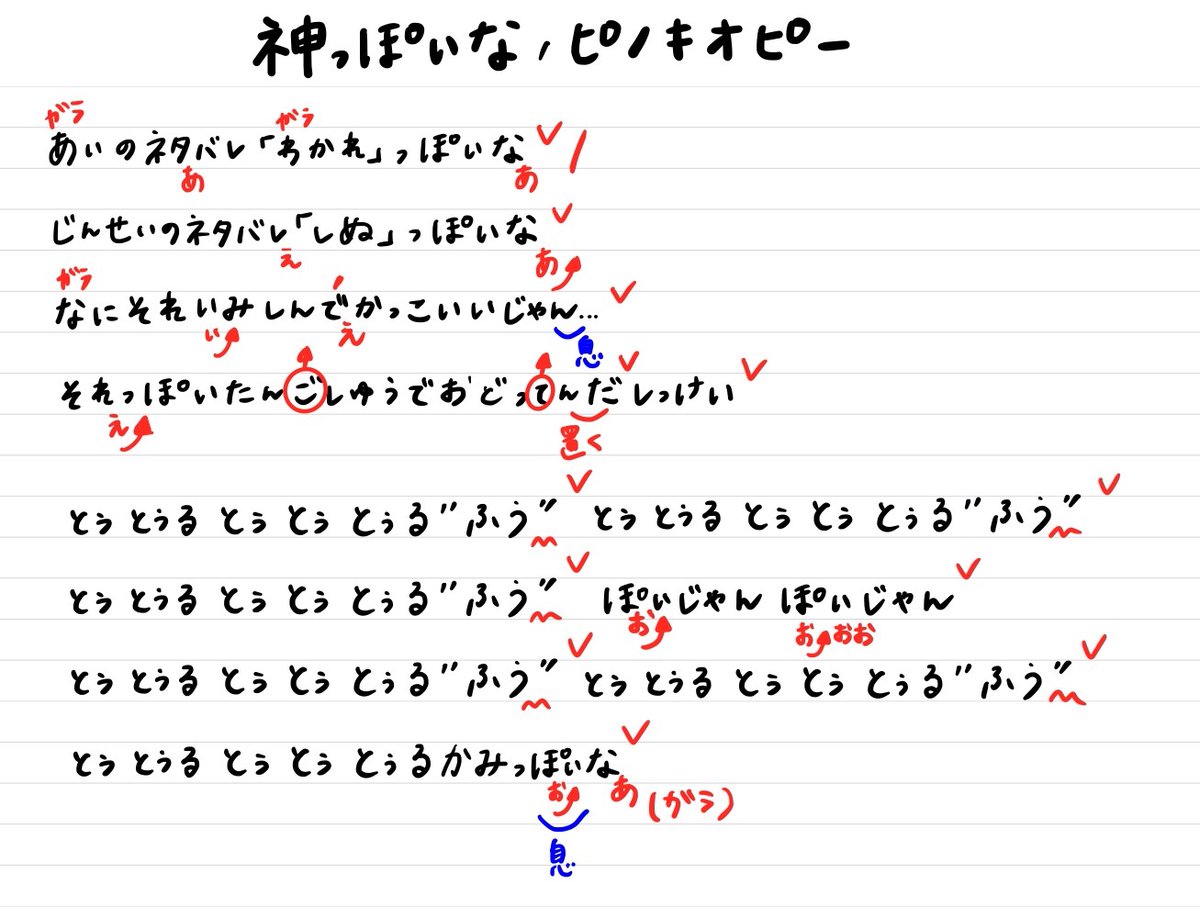 神っぽいな/ピノキオピー
がう がう
あいのネタバレ「わかれ」っぽいな
あ あ
じんせいのネタバレ「しぬ」っぽいな
え あ
がう
なにそれいみしんでかっこいいじゃん…
い え 息
それっぽいたんごしゅうでおどってんだ しっけい
え 置く
とぅ とぅる とぅ とぅ とぅる"ふぅ" とぅ とぅる とぅ とぅ とぅる"ふぅ"
とぅ とぅる とぅ とぅ とぅる"ふぅ" ぽいじゃん ぽいじゃん
お おおお
とぅ とぅる とぅ とぅ とぅる"ふぅ" とぅ とぅる とぅ とぅ とぅる"ふぅ"
とぅ とぅる とぅ とぅ とぅるかみっぽいな
お あ(がう)
息